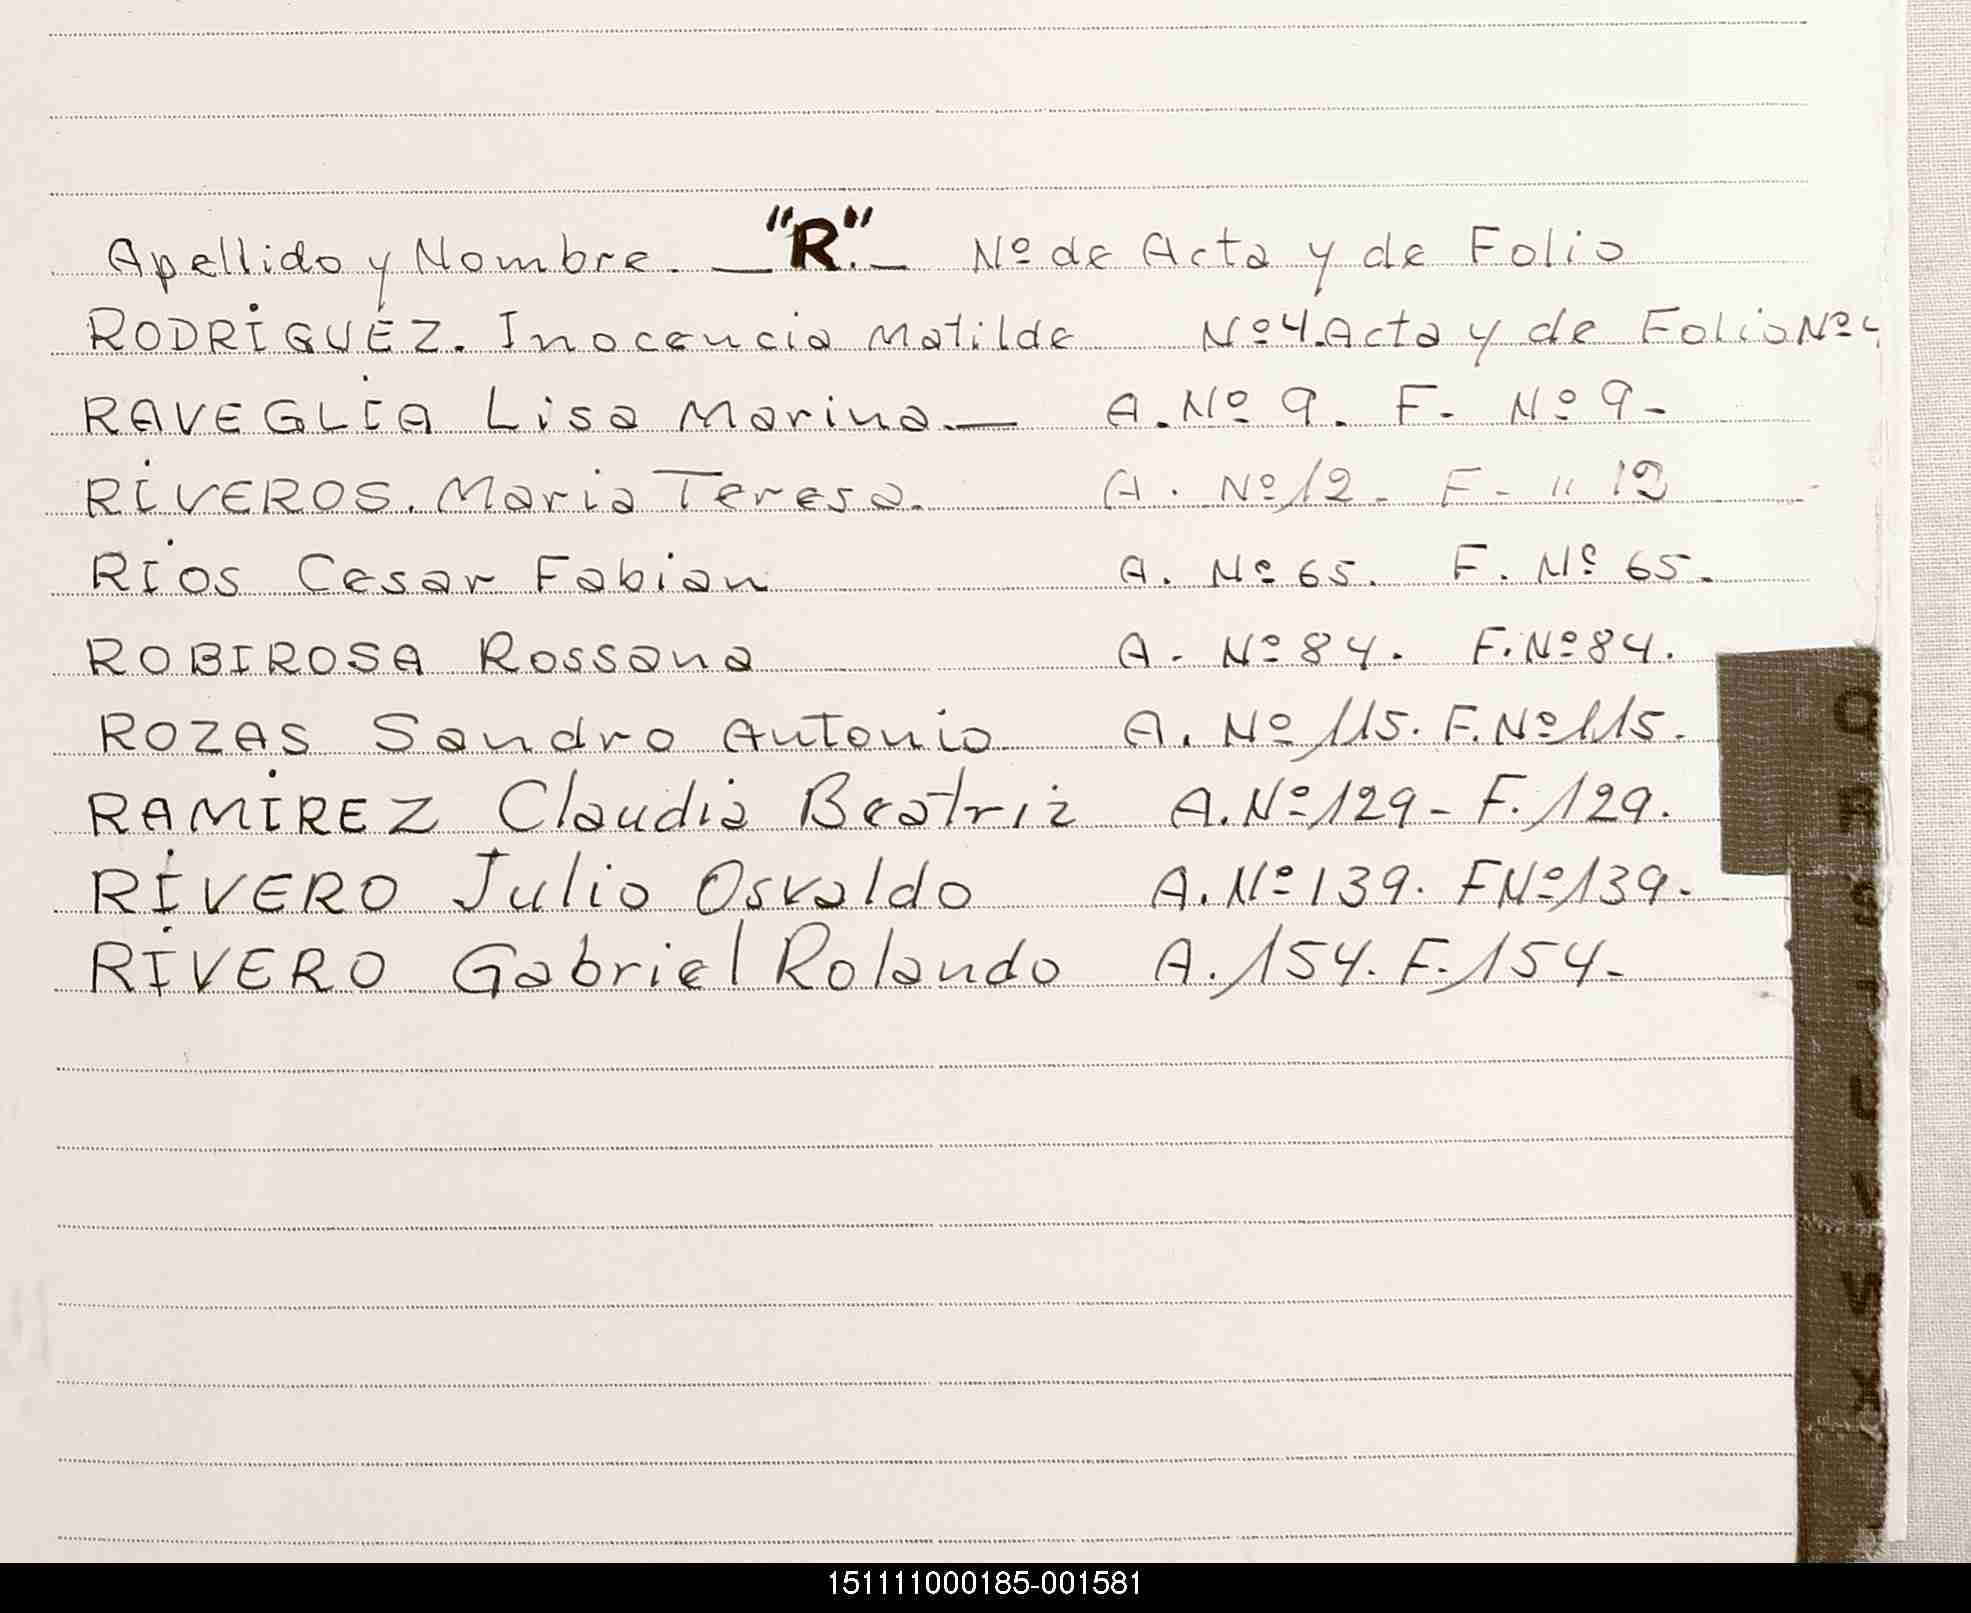 Apellido y Nombre. — "R".— Nº de Acta y de Folio
RODRIGUEZ. Inocencia Matilde Nº 4. Acta y de Folio Nº 4
RAVEGLIA Lisa Marina.— A. Nº 9. F. Nº 9-
RIVEROS. Maria Teresa. A. Nº 12- F- " 12
RIOS Cesar Fabian A. Nº 65. F. Nº 65.
ROBIROSA Rossana A- Nº 84. F. Nº 84.
ROZAS Sandro Antonio A. Nº 115. F. Nº 115.
RAMIREZ Claudia Beatriz A. Nº 129- F. 129.
RIVERO Julio Osvaldo A. Nº 139. F Nº 139-
RIVERO Gabriel Rolando A. 154. F. 154-
151111000185-001581